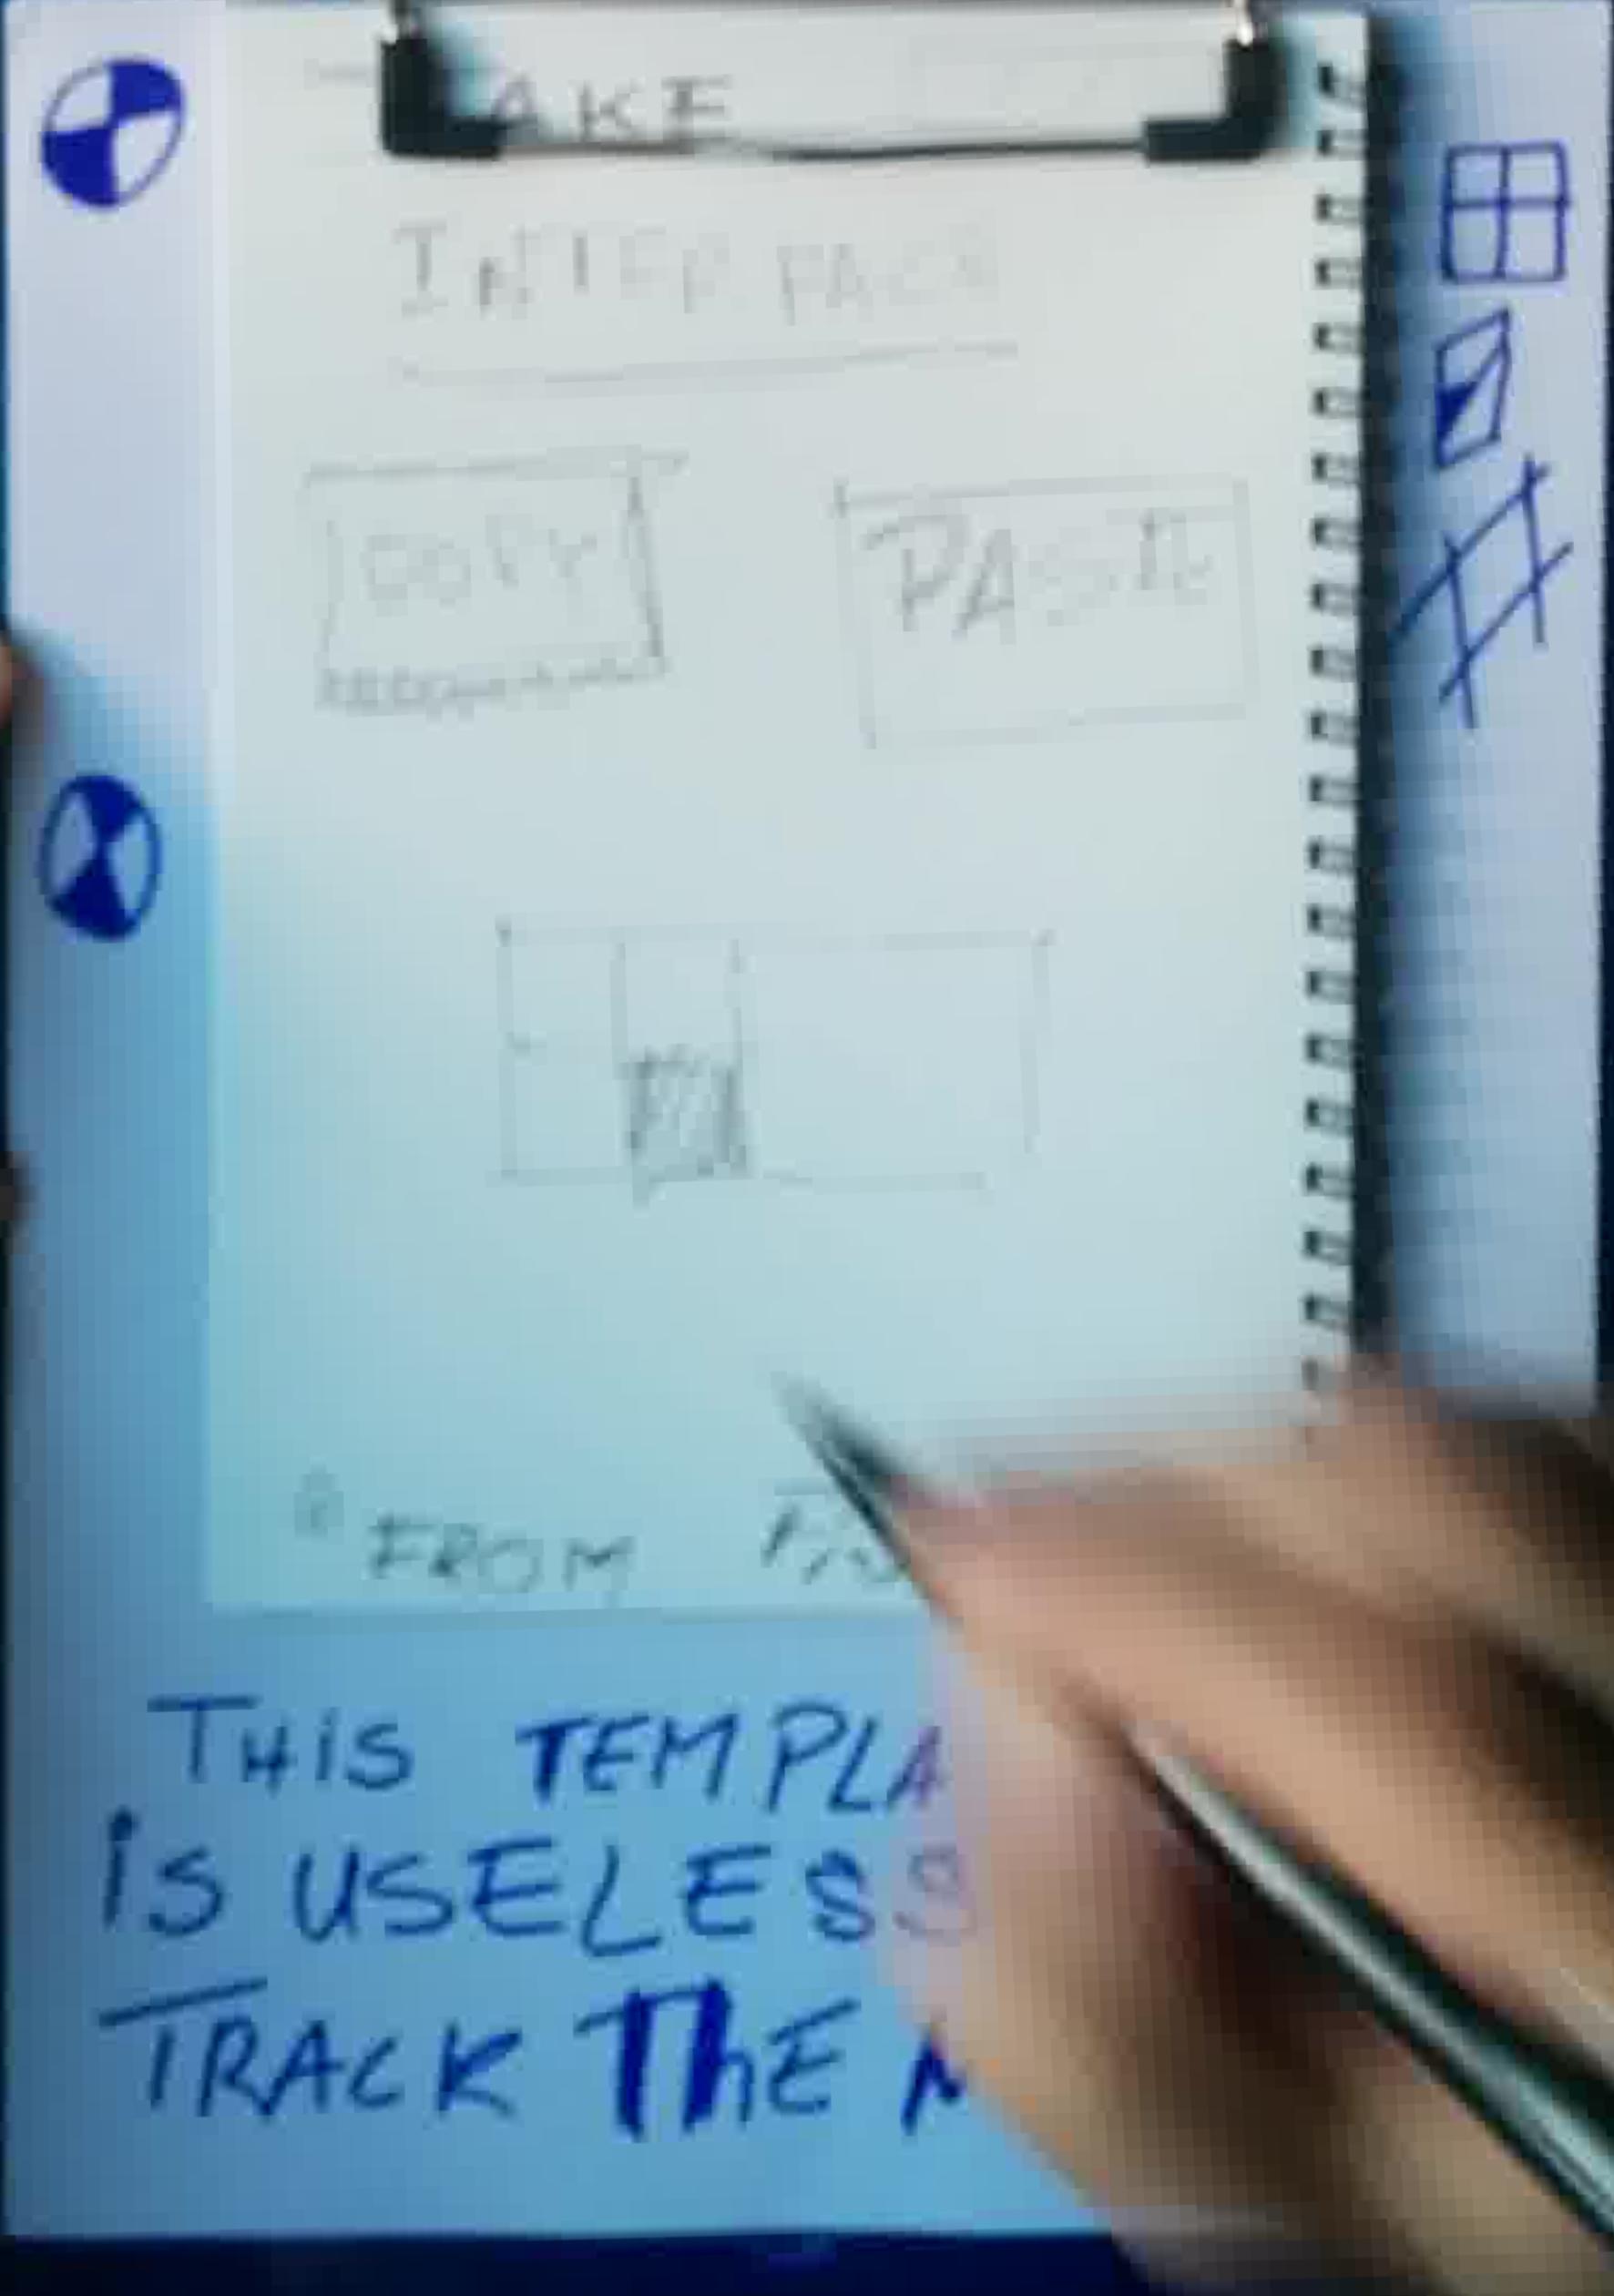 AKE
INTERFACE
COPY PASTE
FROM
THIS TEMPLA
IS USELESS
TRACK THE